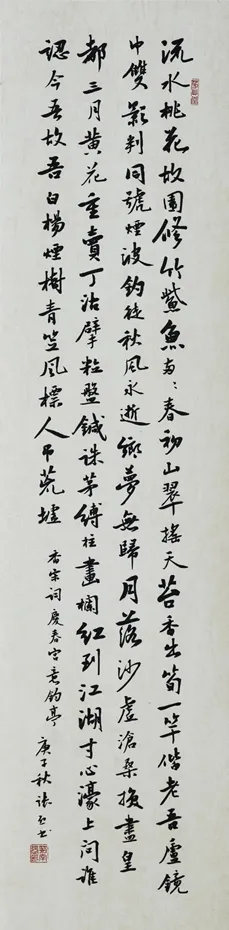 流水桃花故園修竹鱉魚南春初山翠搖天苔香出筍一竿偕老吾廬鏡
中雙影判同號煙波釣徒秋風永逝鄉夢無歸月落沙虛滄桑換盡皇
都三月黃花重賣丁沽擘粒盤鍼誅茅縛柱畫欄紅到江湖寸心濠上問誰
認今吾故吾白楊煙樹青笠風標人弔荒墟
香宋詞慶春宮意釣亭
庚子秋張玉書